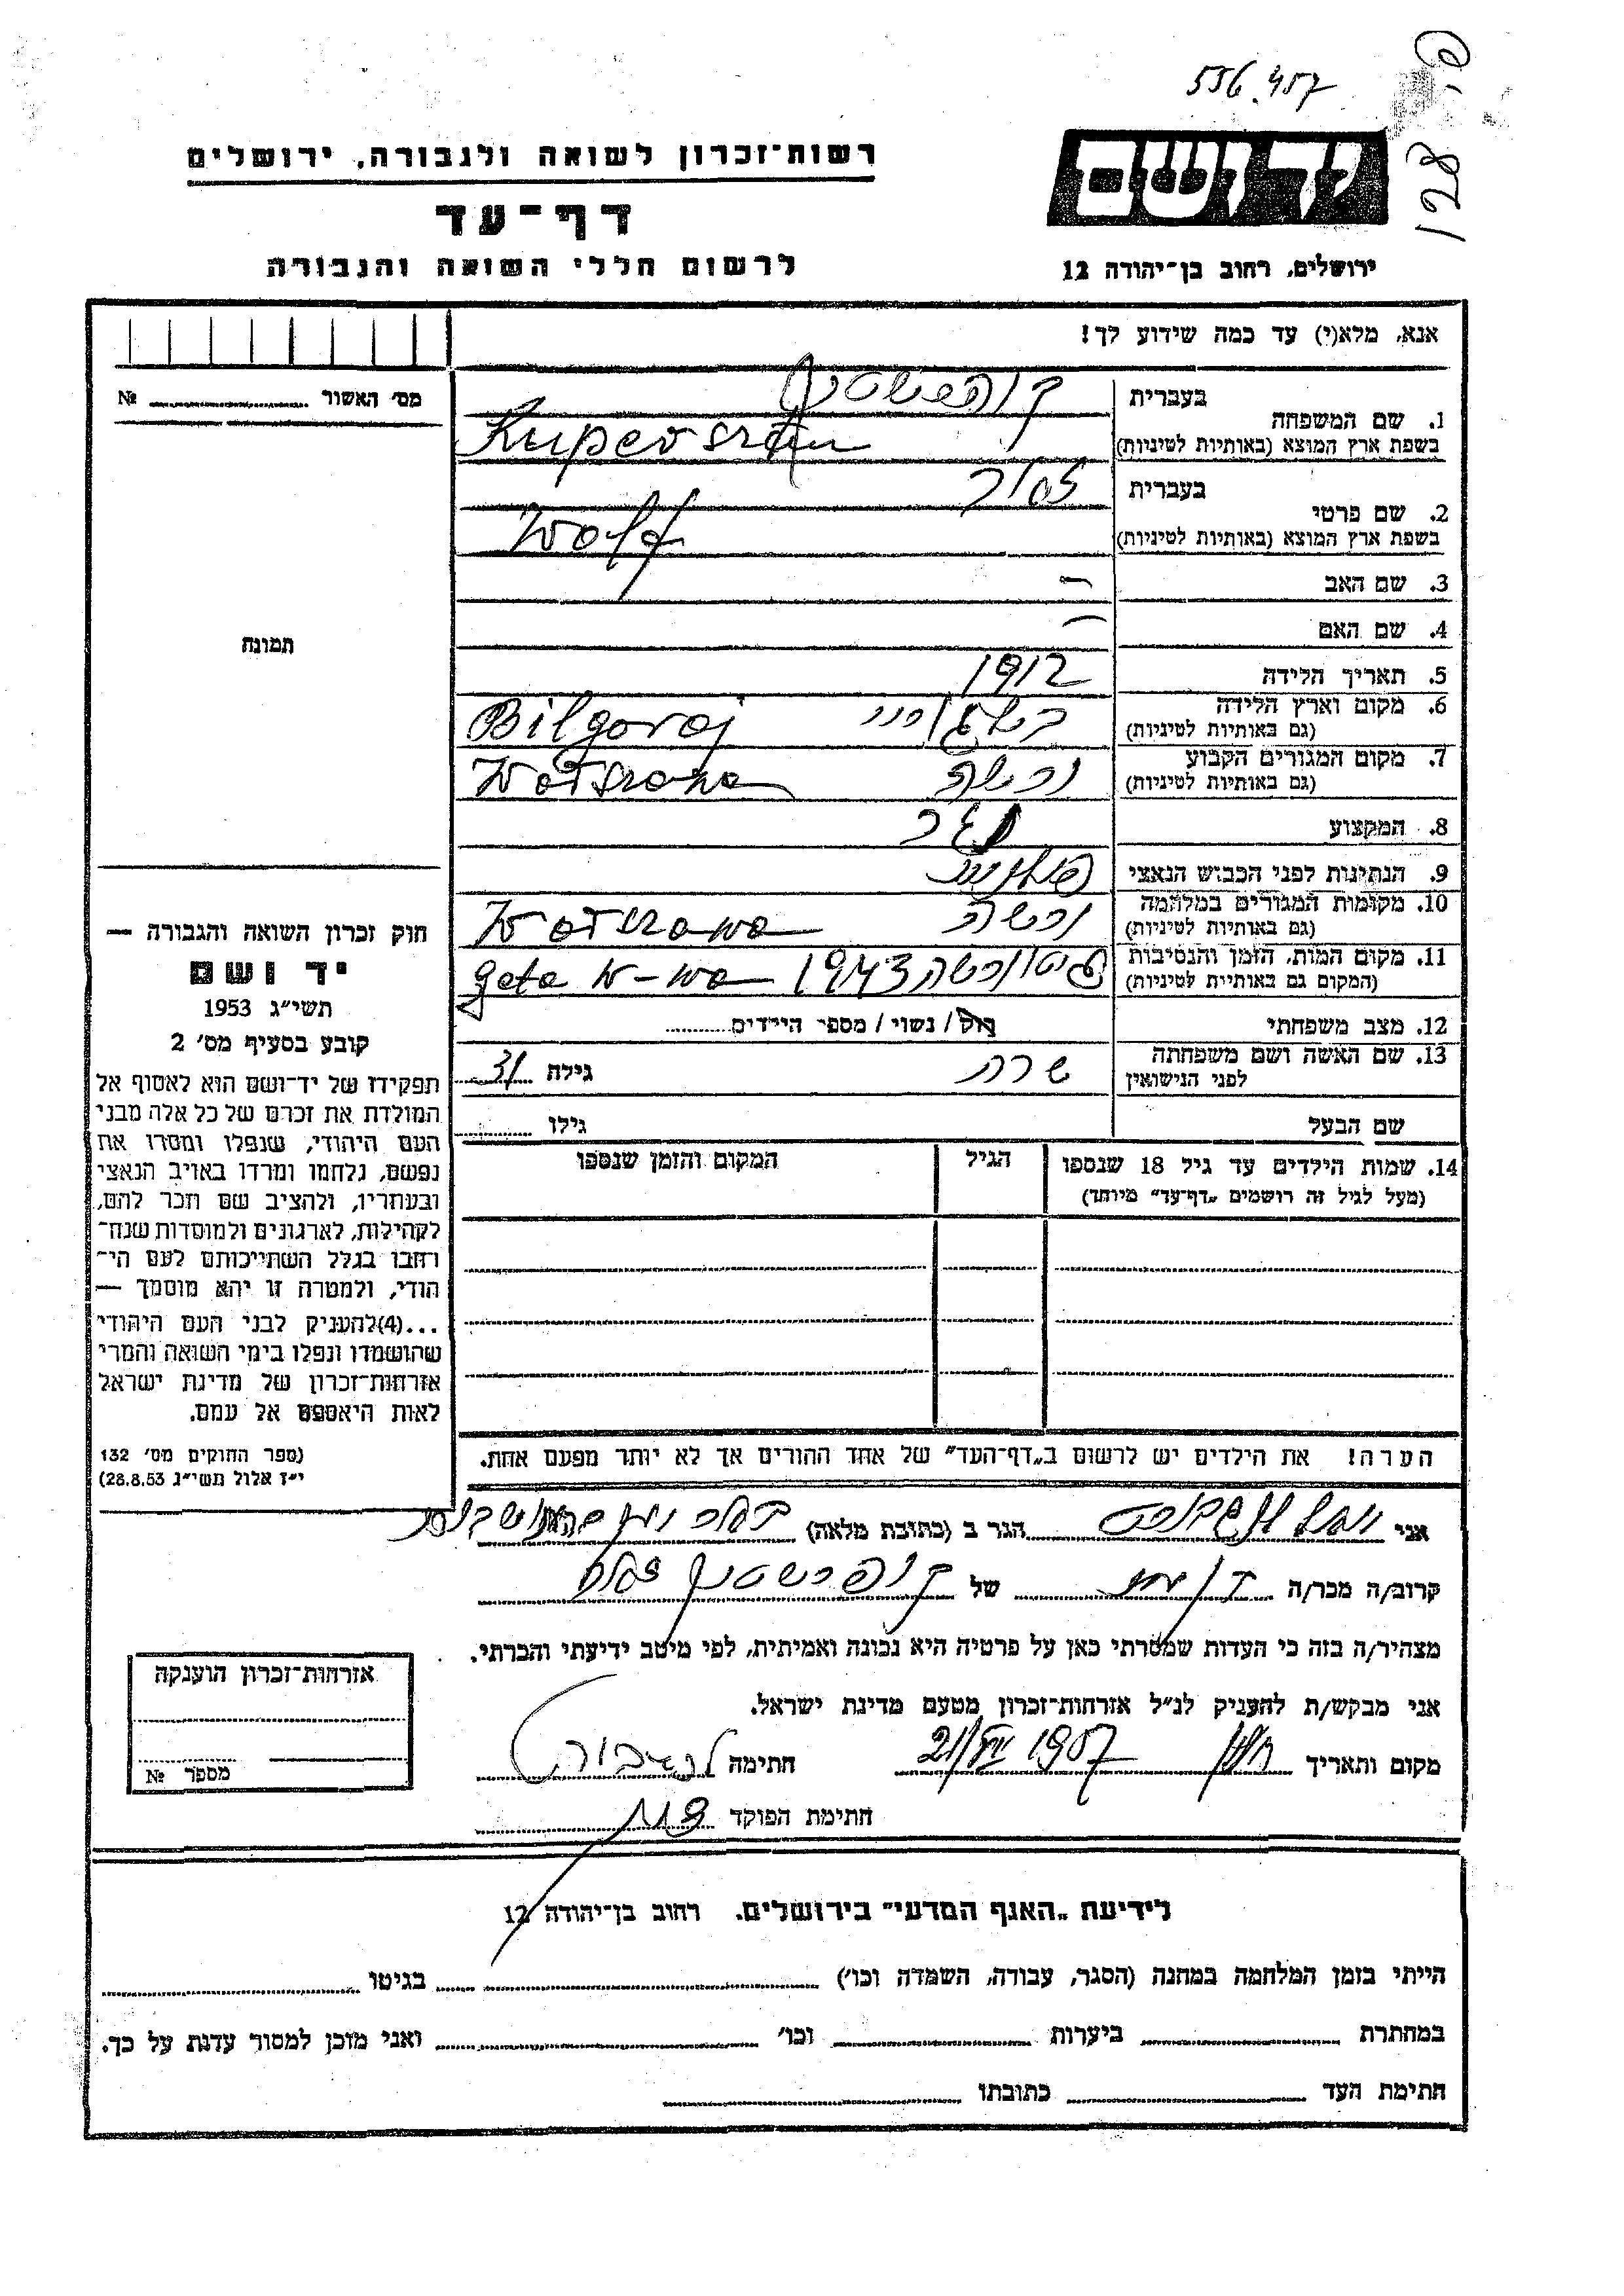 556.457
פ. 128
יד ושם
רשות־זכרון לשואה ולגבורה, ירושלים
דף־עד
לרשום חללי השואה והגבורה
ירושלים, רחוב בן־יהודה 12
אנא, מלא(י) עד כמה שידוע לך!
מס׳ האשור № 
1. שם המשפחה
בעברית
בשפת ארץ המוצא (באותיות לטיניות)
2. שם פרטי
בעברית
בשפת ארץ המוצא (באותיות לטיניות) Wolf
3. שם האב –
4. שם האם –
5. תאריך הלידה 1912
6. מקום וארץ הלידה
(גם באותיות לטיניות) Bilgoraj
7. מקום המגורים הקבוע ורשה
(גם באותיות לטיניות)
8. המקצוע
9. הנתינות לפני הכבוש הנאצי
10. מקומות המגורים במלחמה ורשה
(גם באותיות לטיניות)
11. מקום המות, הזמן והנסיבות גיטו ורשה 1943
(המקום גם באותיות לטיניות) geto W-wa
12. מצב משפחתי רווק / נשוי / מספר הילדים
13. שם האשה ושם משפחתה שרה גילה 31
לפני הנישואין
שם הבעל גילו
14. שמות הילדים עד גיל 18 שנספו הגיל המקום והזמן שנספו
(מעל לגיל זה רושמים „דף־עד״ מיוחד)
הערה! את הילדים יש לרשום ב„דף־העד״ של אחד ההורים אך לא יותר מפעם אחת.
תמונה
חוק זכרון השואה והגבורה —
יד ושם
תשי״ג 1953
קובע בסעיף מס׳ 2
תפקידו של יד־ושם הוא לאסוף אל
המולדת את זכרם של כל אלה מבני
העם היהודי, שנפלו ומסרו את
נפשם, נלחמו ומרדו באויב הנאצי
ובעוזריו, ולהציב שם וזכר להם,
לקהילות, לארגונים ולמוסדות שנח־
רבו בגלל השתייכותם לעם הי־
הודי, ולמטרה זו יהא מוסמך —
...(4) להעניק לבני העם היהודי
שהושמדו ונפלו בימי השואה והמרי
אזרחות־זכרון של מדינת ישראל
לאות היאספם אל עמם.
(ספר החוקים מס׳ 132
י״ז אלול תשי״ג 28.8.53)
אני הגר ב (כתובת מלאה)
קרוב/ה מכר/ה של קופרשטיין
מצהיר/ה בזה כי העדות שמסרתי כאן על פרטיה היא נכונה ואמיתית, לפי מיטב ידיעתי והכרתי.
אני מבקש/ת להעניק לנ״ל אזרחות־זכרון מטעם מדינת ישראל.
מקום ותאריך 1957 חתימה
חתימת הפוקד
אזרחות־זכרון הוענקה
מספר №
לידיעת „האגף המדעי״ בירושלים. רחוב בן־יהודה 12
הייתי בזמן המלחמה במחנה (הסגר, עבודה, השמדה וכו׳) בגיטו
במחתרת ביערות וכו׳ ואני מוכן למסור עדות על כך.
חתימת העד כתובתו